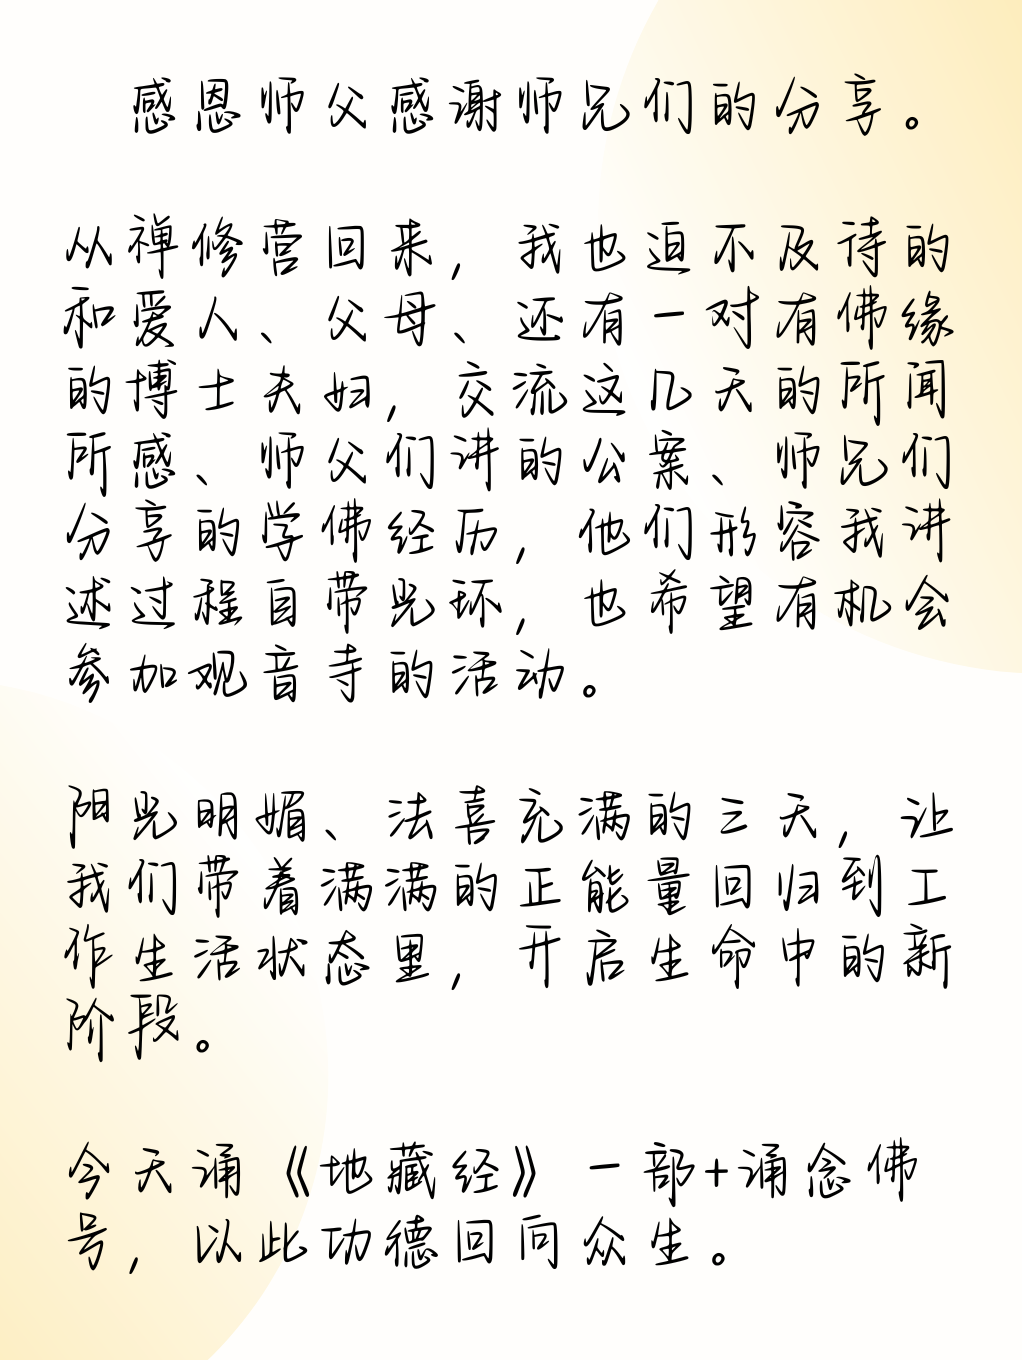 感恩师父感谢师兄们的分享。
从禅修营回来，我也迫不及待的
和爱人、父母、还有一对有佛缘
的博士夫妇，交流这几天的所闻
所感、师父们讲的公案、师兄们
分享的学佛经历，他们形容我讲
述过程自带光环，也希望有机会
参加观音寺的活动。
阳光明媚、法喜充满的三天，让
我们带着满满的正能量回归到工
作生活状态里，开启生命中的新
阶段。
今天诵《地藏经》一部+诵念佛
号，以此功德回向众生。